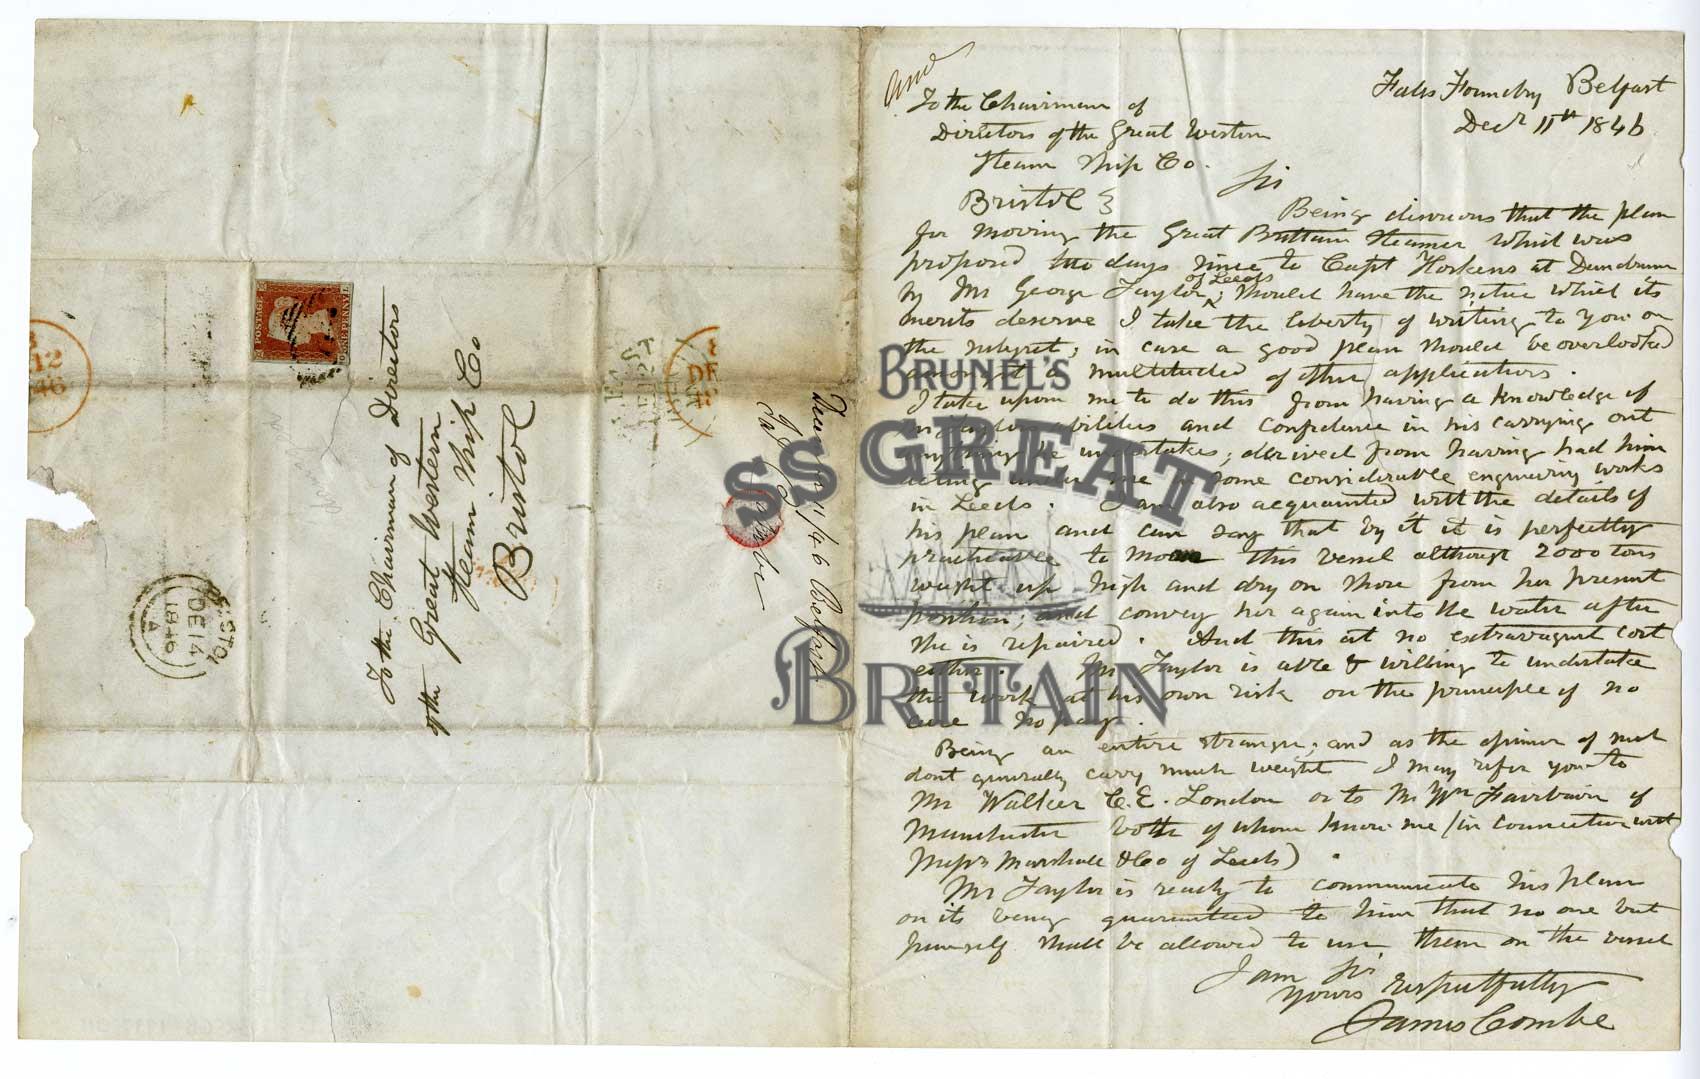 To the Chairman of Directors
of the Great Western
Steam Ship Co
Bristol
POSTAGE
ONE PENNY
12
46
BRISTOL
DE 14
1846
A
Decr 11/46 Belfast
Js Combe
Falls Foundry Belfast
Decr 11th 1846
To the Chairman of
Directors of the Great Western
Steam Ship Co.
Bristol }
Sir
Being desireous that the plan
for moving the Great Brittain Steamer which was
proposed days since to Capt Hoskens at Dundrum
by Mr George Taylor of Leeds; should have the notice which its
merits deserve I take the liberty of writing to you on
the subject; in case a good plan should be overlooked
amongst a multitude of other applications.
I take upon me to do this from having a knowledge of
Mr Taylors abilities and confidence in his carrying out
anything he undertakes; derived from having had him
acting under me in some considerable engineering works
in Leeds. I am also acquainted with the details of
his plan and can say that by it it is perfectly
practicable to move this vessel although 2000 tons
weight up high and dry on shore from her present
position; and convey her again into the water after
she is repaired. And this at no extravagant cost
either. Mr Taylor is able & willing to undertake
the work at his own risk on the principle of no
cure no pay.
Being an entire stranger; and as the opinion of such
dont generally carry much weight I may refer you to
Mr Walker C.E. London or to Mr Wm Fairbairn of
Manchester both of whom know me (in connection with
Messrs Marshall & Co of Leeds).
Mr Taylor is ready to communicate his plan
on its being guaranteed to him that no one but
himself shall be allowed to use them on the vessel
I am Sir
Yours respectfully
James Combe
BRUNEL'S
SS GREAT
BRITAIN